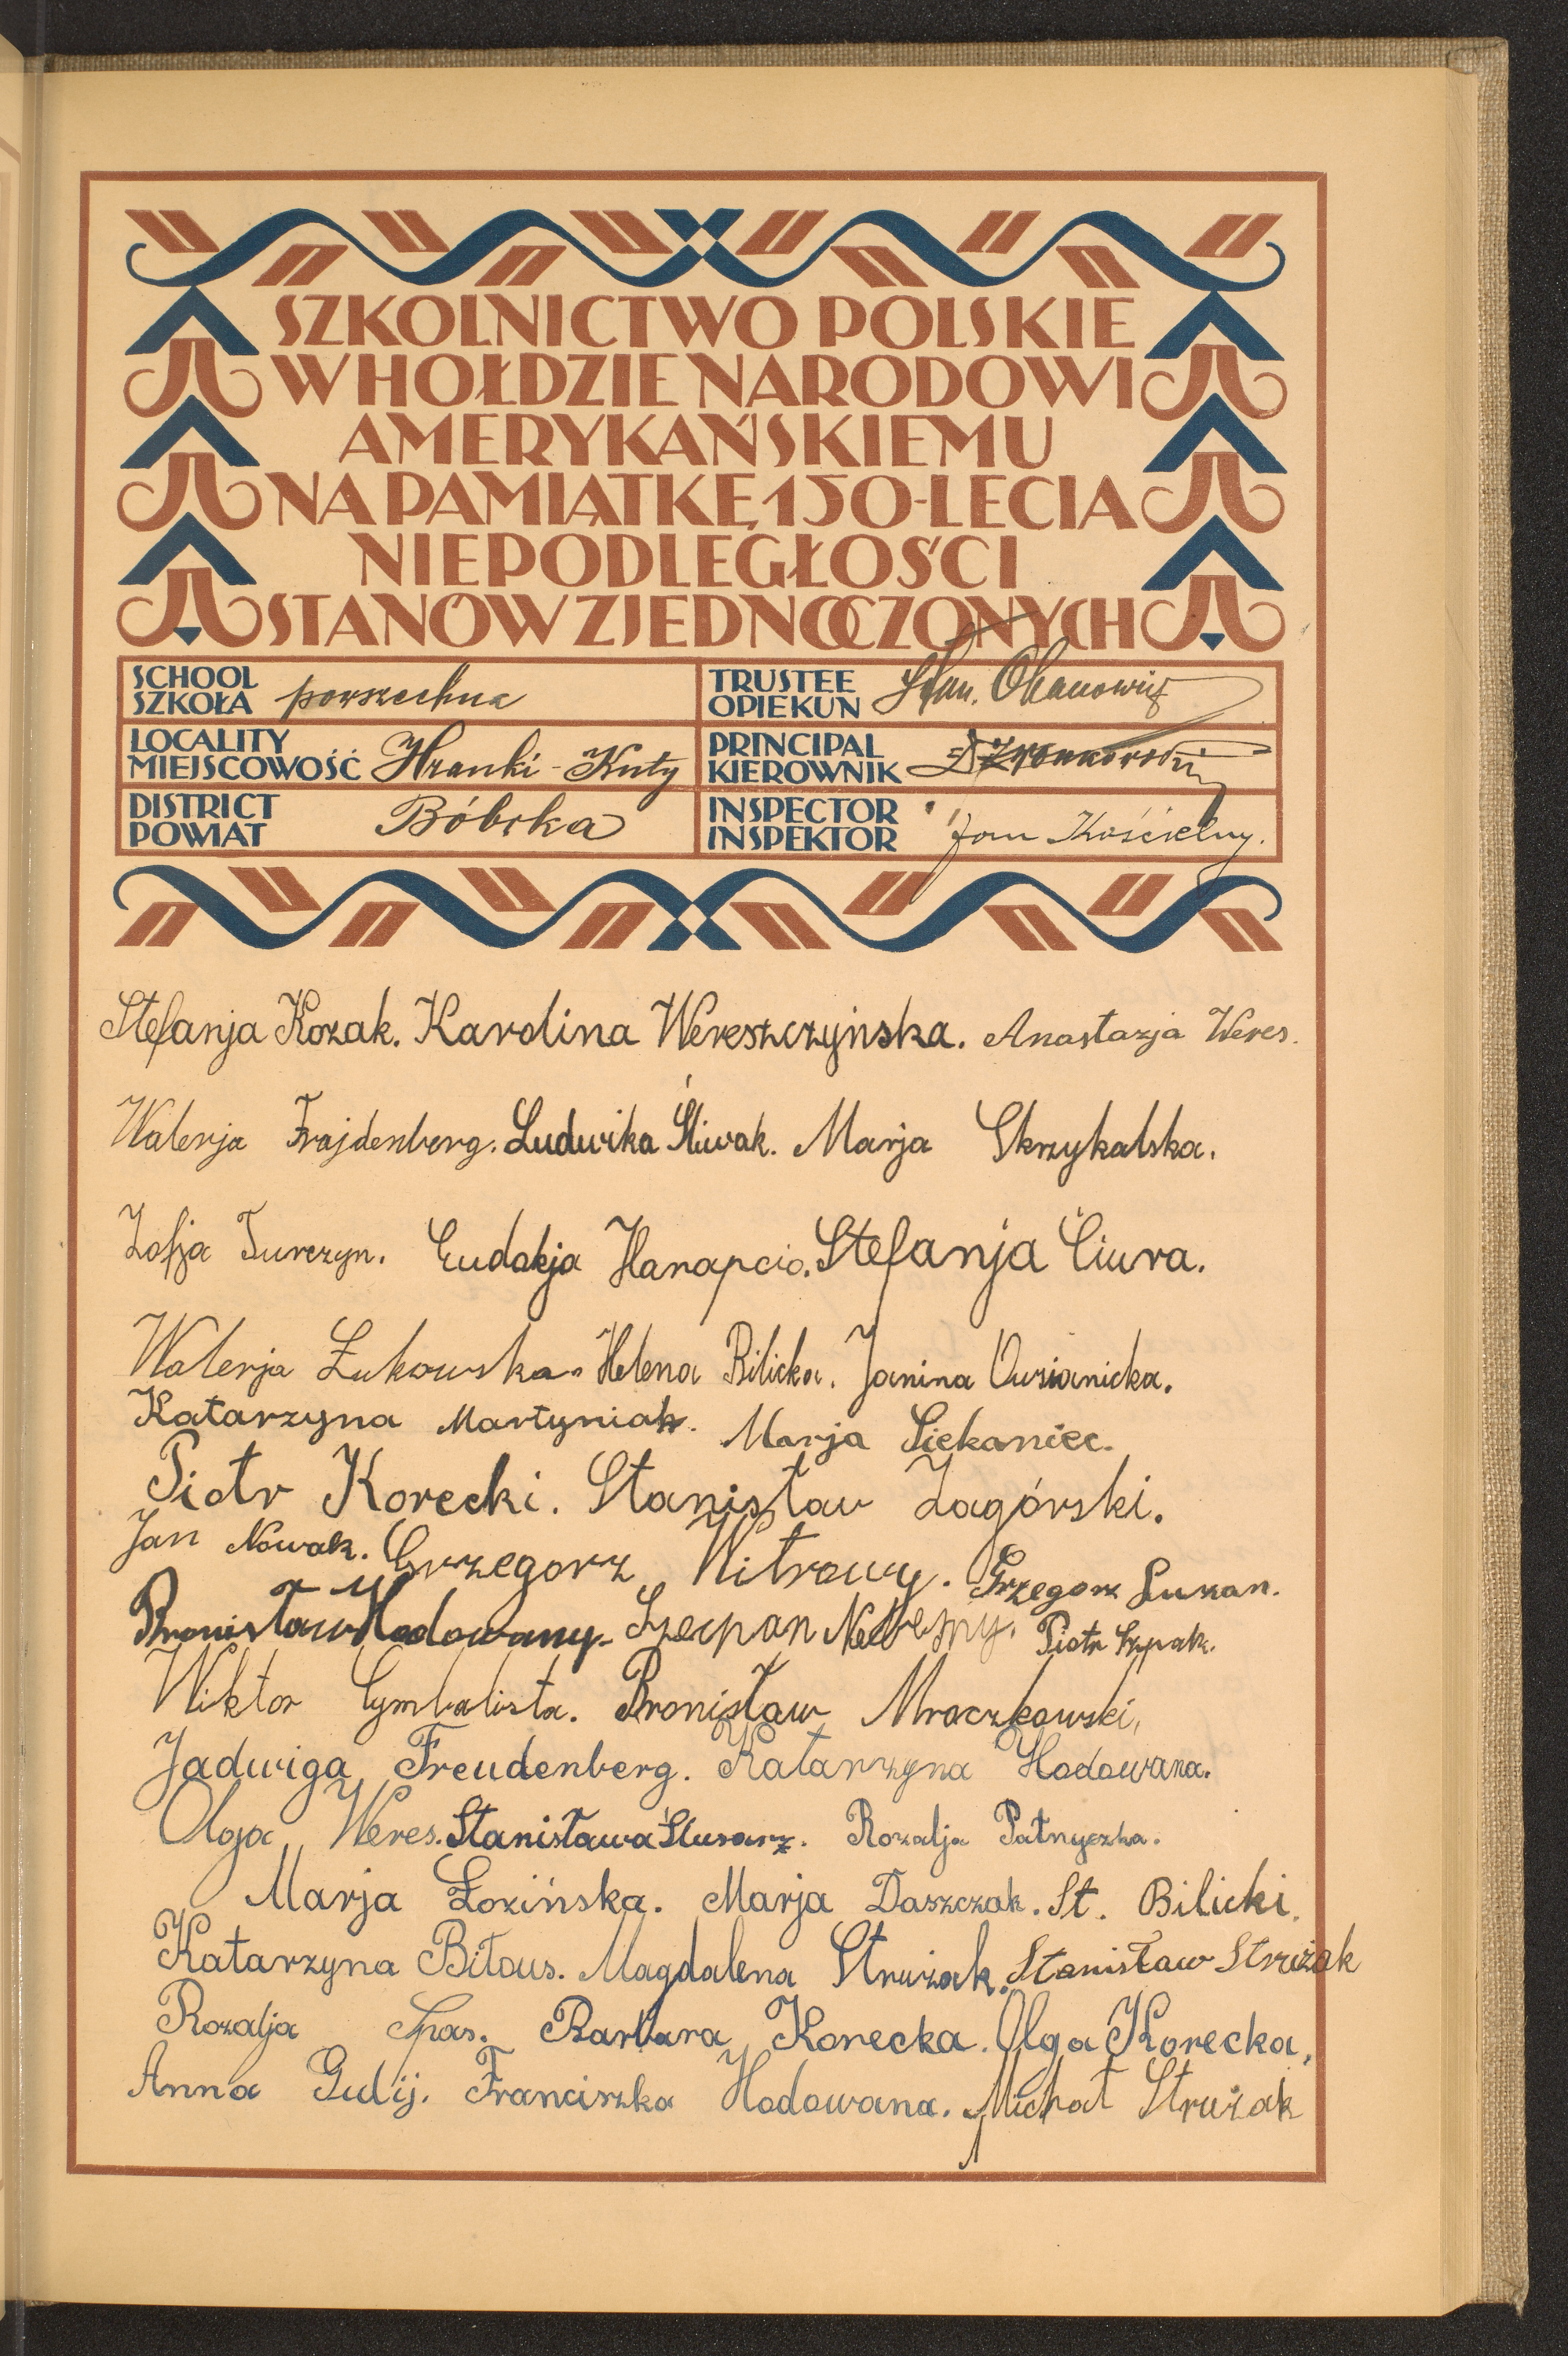 SZKOLNICTWO POLSKIE
W HOŁDZIE NARODOWI
AMERYKAŃSKIEMU
NA PAMIĄTKĘ 150-LECIA
NIEPODLEGŁOŚCI
STANÓW ZJEDNOCZONYCH
SCHOOL
SZKOŁA powszechna
TRUSTEE
OPIEKUN Stan.
LOCALITY
MIEJSCOWOŚĆ Hranki - Kuty
PRINCIPAL
KIEROWNIK
DISTRICT
POWIAT Bóbrka
INSPECTOR
INSPEKTOR Jan Kościelny.
Stefanja Kozak. Karolina Wereszczyńska. Anastazja Weres.
Walerja Frajdenberg. Ludwika Śliwak. Marja Skrzykalska.
Zofja Turczyn. Eudokja Harapcio. Stefanja Ciura.
Walerja Żukowska. Helena Bilicka. Janina Owsianicka.
Katarzyna Martyniak. Marja Siekaniec.
Piotr Korecki. Stanisław Zagórski.
Jan Nowak. Grzegorz Witrowy. Grzegorz Luzan.
Bronisław Hodowany. Szczepan Piotr Szpak.
Wiktor Cymbalista. Bronisław Mroczkowski,
Jadwiga Freudenberg. Katarzyna Hodowana.
Olga Weres. Stanisława Ślusarz. Rozalja Patryczka.
Marja Łozińska. Marja Daszczak. St. Bilicki.
Katarzyna Biłous. Magdalena Strużak. Stanisław Strużak
Rozalja Spas. Barbara Korecka. Olga Korecka,
Anna Gulij. Franciszka Hodowana. Michał Strużak